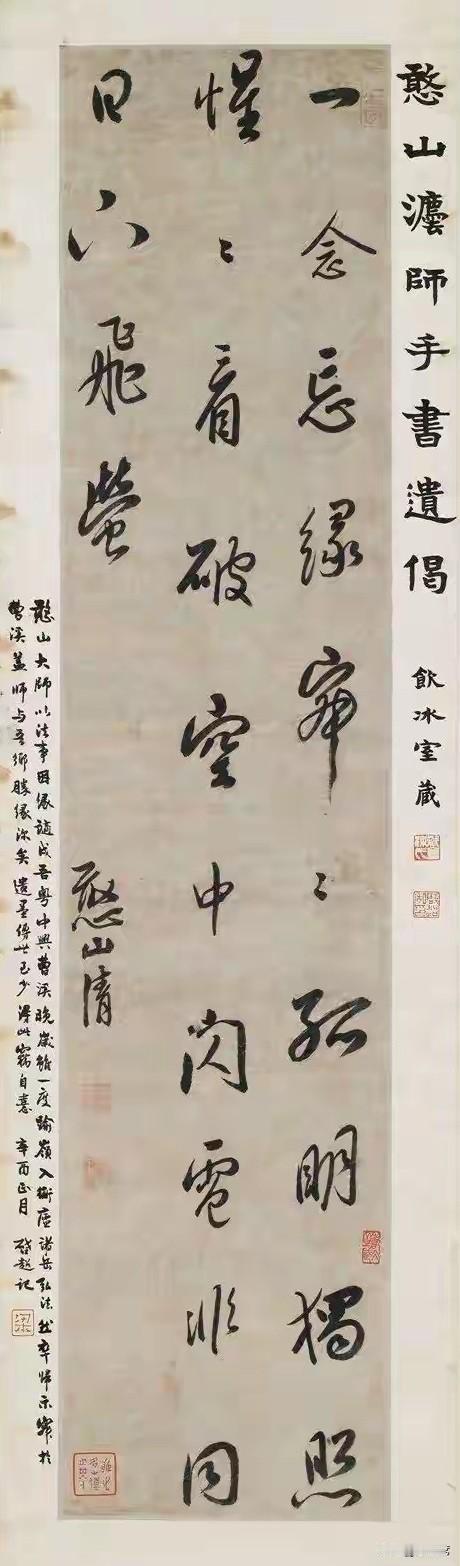 憨山灋師手書遺偈 飲冰室藏
一念忘緣寂〻孤明獨照
惺〻看破空中閃電非同
日下飛螢
憨山清
憨山大師以法事因緣謫戍吾粵中興曹溪晚歲雖一度踰嶺入衡廬諸岳弘法然卒歸示寂於
曹溪蓋師与吾鄉勝緣深矣遺墨傳世已少得此竊自憙 辛酉正月 啓超記